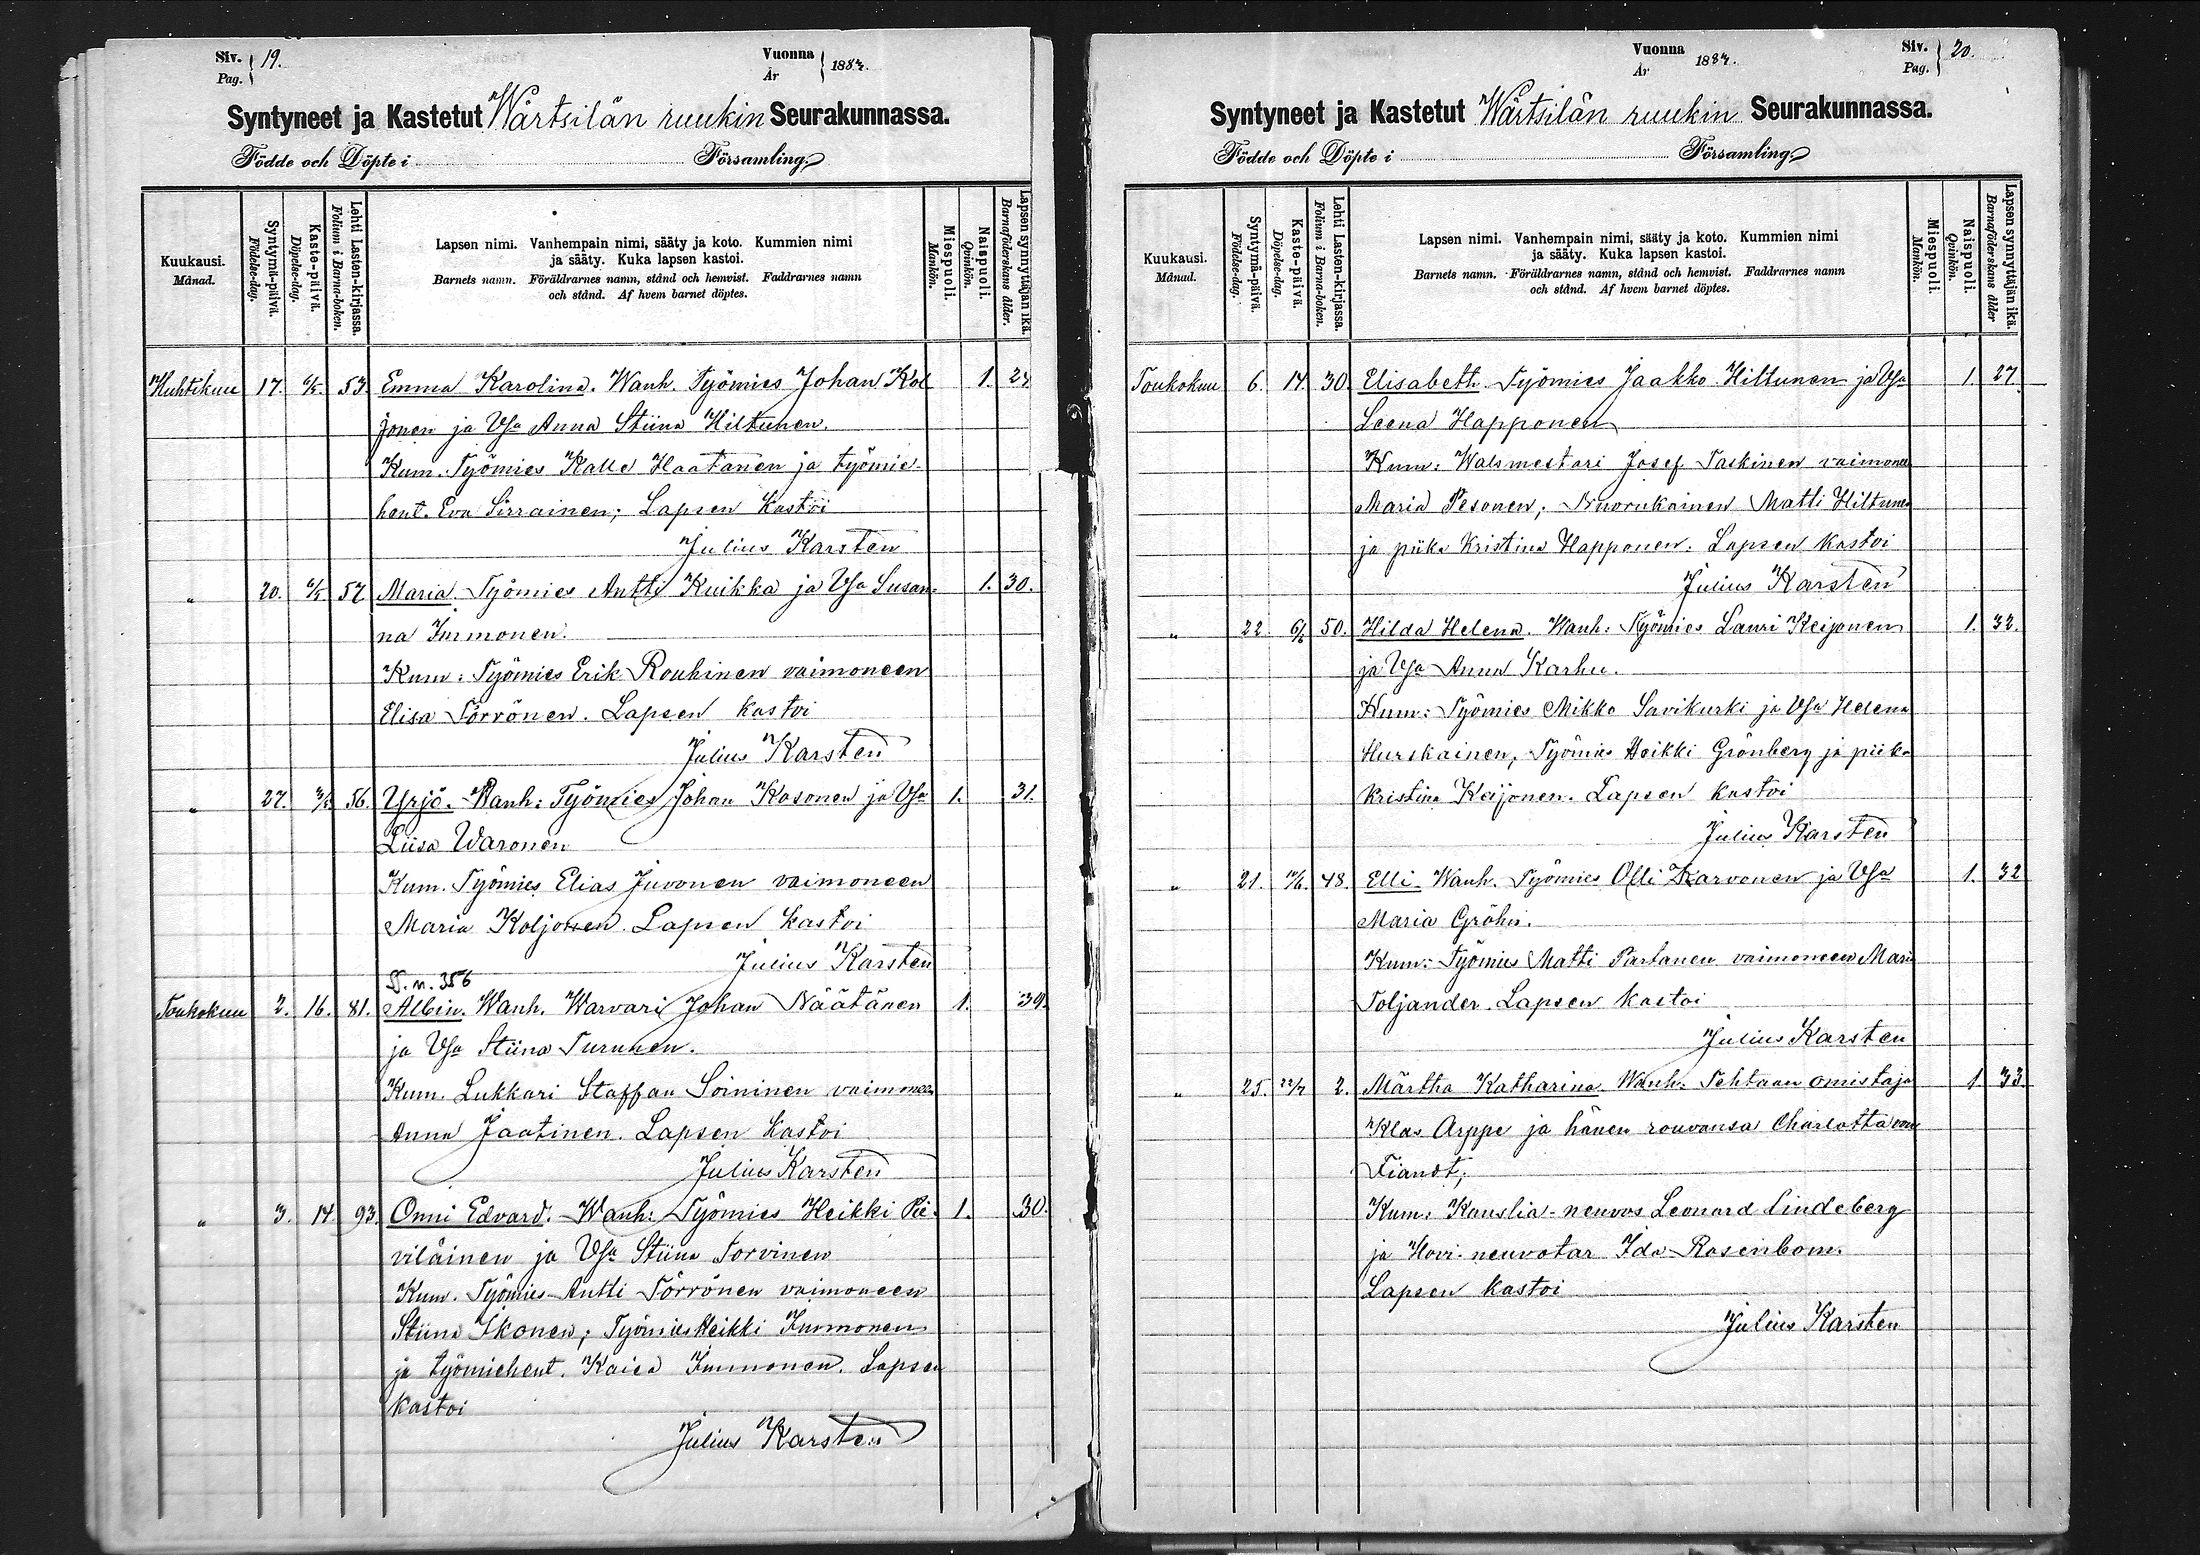 Siv. 19.
Pag.
Vuonna 1884.
År
Syntyneet ja Kastetut Wärtsilän ruukin Seurakunnassa.
Födde och Döpte i Församling.
Kuukausi. Månad.
Syntymä-päivä. Födelse-dag.
Kaste-päivä. Döpelse-dag.
Lehti Lasten-kirjassa. Folium i Barna-boken.
Lapsen nimi. Vanhempain nimi, sääty ja koto. Kummien nimi
ja sääty. Kuka lapsen kastoi.
Barnets namn. Föräldrarnes namn, stånd och hemvist. Faddrarnes namn
och stånd. Af hvem barnet döptes.
Miespuoli. Mankön.
Naispuoli. Qvinkön.
Lapsen synnyttäjän ikä. Barnaföderskans ålder.
Huhtikuu 17. 53. Emma Karolina. Wanh. Työmies Johan Kol 1.
jonen ja Vsa Anna Stiina Hiltunen.
Kum. Työmies Kalle Haatanen ja työmie-
hent. Eva Sirrainen; Lapsen Kastoi
Julius Karsten
" 20. 57 Maria. Työmies Antti Kuikka ja Vsa Susan- 1. 30.
na Immonen.
Kum: Työmies Erik Rouhinen vaimoneen
Elisa Törrönen. Lapsen kastoi
Julius Karsten
" 27. 56. Yrjö. Wanh: Työmies Johan Kosonen ja Vsa 1. 31.
Liisa Waronen
Kum. Työmies Elias Juvonen vaimoneen
Maria Koljonen. Lapsen kastoi
Julius Karsten
S. n. 356
Toukokuu 2. 16. 81. Albin. Wanh. Warvari Johan Näätänen 1. 39.
ja Vsa Stiina Turunen.
Kum. Lukkari Staffan Soininen vaimoneen
Anna Jaatinen. Lapsen Kastoi
Julius Karsten
" 3. 14 93. Onni Edvard. Wanh: Työmies Heikki Pie- 1. 30.
viläinen ja Vsa Stiina Torvinen
Kum. Työmies Antti Törrönen vaimoneen
Stiina Ikonen; Työmies Heikki Immonen
ja työmiehent. Kaisa Immonen. Lapsen
kastoi
Julius Karsten
Vuonna 1884.
År
Siv. 20.
Pag.
Syntyneet ja Kastetut Wärtsilän ruukin Seurakunnassa.
Födde och Döpte i Församling.
Kuukausi. Månad.
Syntymä-päivä. Födelse-dag.
Kaste-päivä. Döpelse-dag.
Lehti Lasten-kirjassa. Folium i Barna-boken.
Lapsen nimi. Vanhempain nimi, sääty ja koto. Kummien nimi
ja sääty. Kuka lapsen kastoi.
Barnets namn. Föräldrarnes namn, stånd och hemvist. Faddrarnes namn
och stånd. Af hvem barnet döptes.
Miespuoli. Mankön.
Naispuoli. Qvinkön.
Lapsen synnyttäjän ikä. Barnaföderskans ålder
Toukokuu 6. 14. 30. Elisabeth. Työmies Jaakko Hiltunen ja Vsa 1. 27.
Leena Happonen
Kum: Walsmestari Josef Taskinen vaimoneen
Maria Pesonen; Nuorukainen Matti Hiltunen
ja piika Kristina Happonen. Lapsen kastoi
Julius Karsten
" 22. 6/6 50. Hilda Helena. Wanh: Työmies Lauri Keijonen 1. 32.
ja Vsa Anna Karhu.
Kum: Työmies Mikko Savikurki ja Vsa Helena
Hurskainen, Työmies Heikki Grönberg ja piika
Kristina Keijonen. Lapsen kastoi
Julius Karsten
" 21. 48. Elli. Wanh. Työmies Olli Karvonen ja Vsa 1. 32
Maria Gröhn.
Kum: Työmies Matti Partanen vaimoneen Maria
Toljander. Lapsen kastoi
Julius Karsten
" 25. 22/7 2. Märtha Katharina. Wanh: Tehtaan omistaja 1 33.
Klas Arppe ja hänen rouvansa Charlotta von
Fiandt;
Kum: Kanslia-neuvos Leonard Lindeberg
ja Hovi-neuvotar Ida Rosenbom.
Lapsen kastoi
Julius Karsten